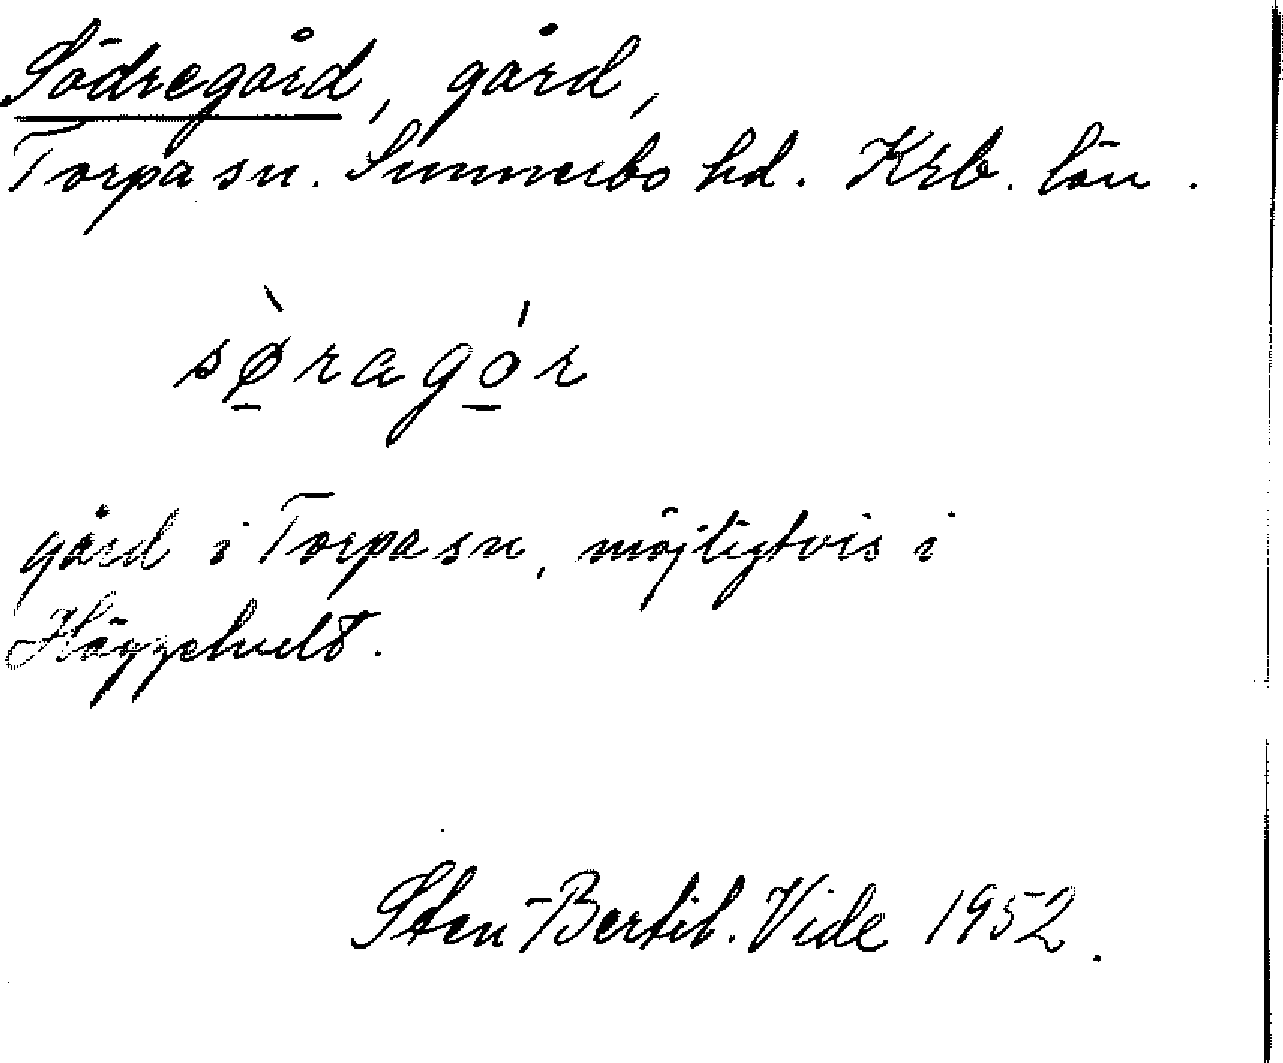 Södregård, gård,
Torpa sn. Sunnerbo hd. Krb. län.
sø̱̀ragó̱r
gård i Torpa sn, möjligtvis i
Häggehult.
Sten-Bertil. Vide 1952.